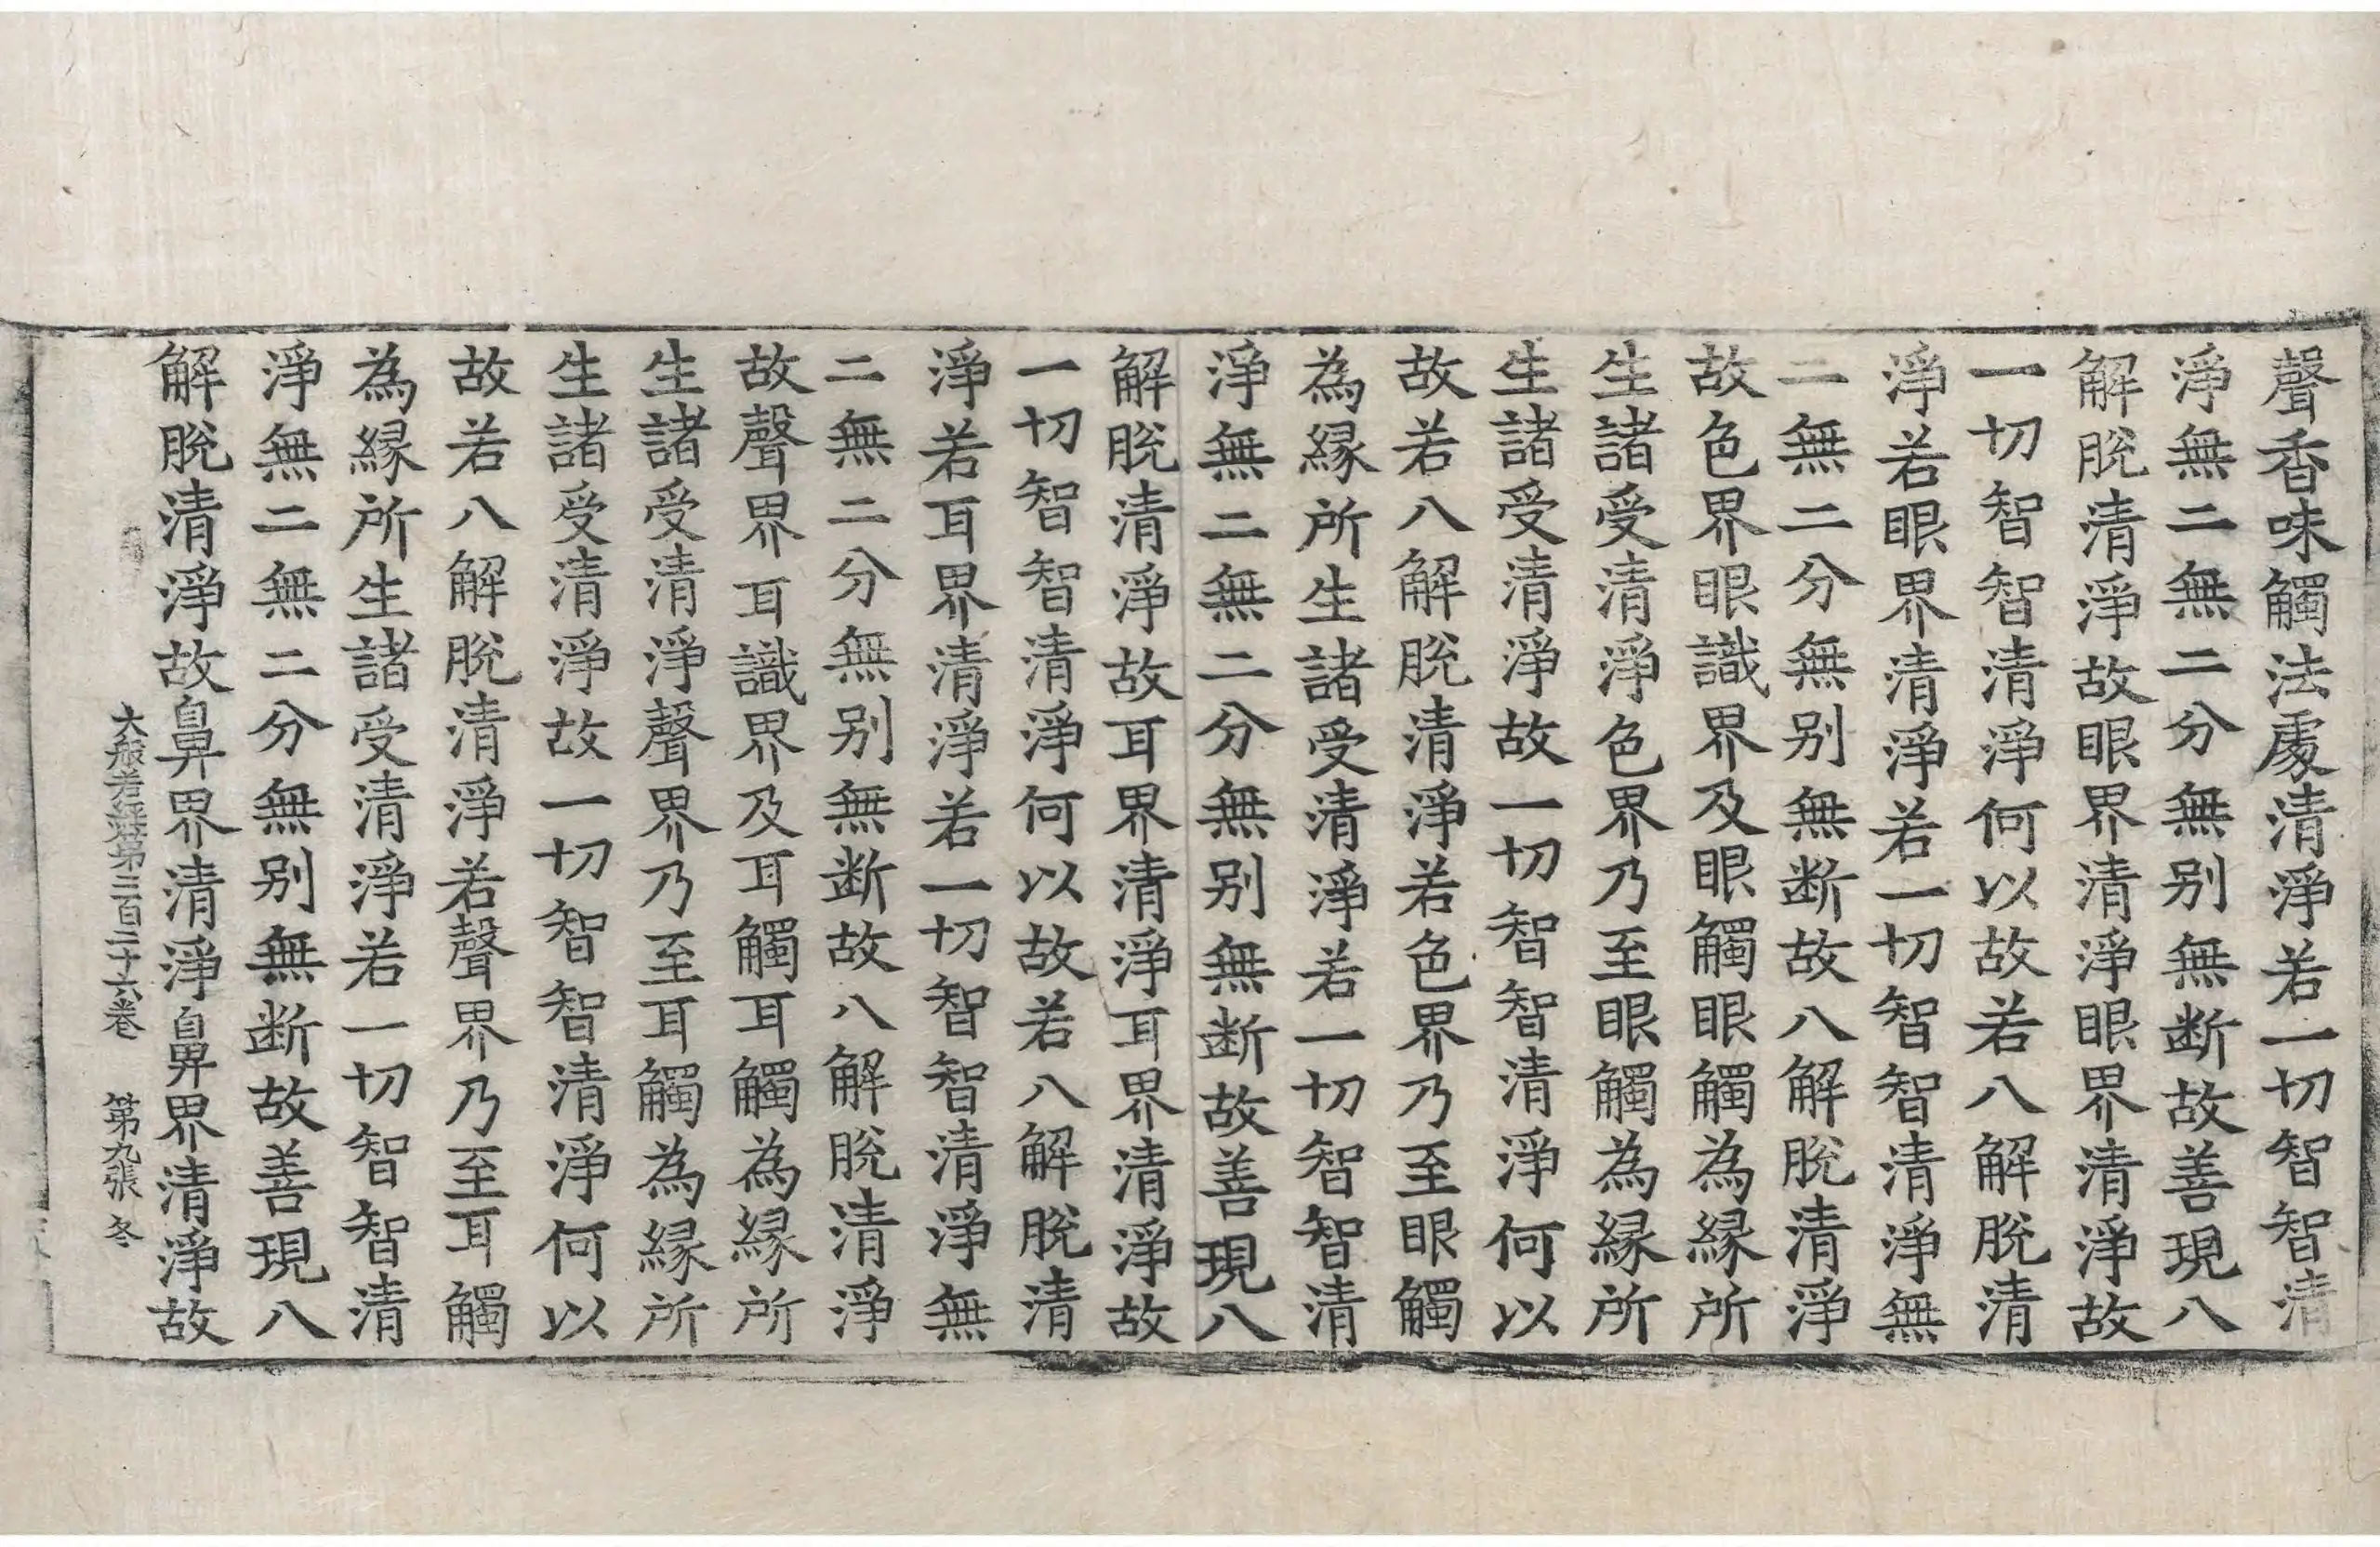 聲香味觸法處清淨若一切智智清
淨無二無二分無别無断故善現八
解脫清淨故眼界清淨眼界清淨故
一切智智清淨何以故若八解脫清
淨若眼界清淨若一切智智清淨無
二無二分無别無断故八解脫清淨
故色界眼識界及眼觸眼觸為縁所
生諸受清淨色界乃至眼觸為縁所
生諸受清淨故一切智智清淨何以
故若八解脫清淨若色界乃至眼觸
為縁所生諸受清淨若一切智智清
淨無二無二分無别無断故善現八
解脫清淨故耳界清淨耳界清淨故
一切智智清淨何以故若八解脫清
淨若耳界清淨若一切智智清淨無
二無二分無别無断故八解脫清淨
故聲界耳識界及耳觸耳觸為縁所
生諸受清淨聲界乃至耳觸為縁所
生諸受清淨故一切智智清淨何以
故若八解脫清淨若聲界乃至耳觸
為縁所生諸受清淨若一切智智清
淨無二無二分無别無断故善現八
解脫清淨故鼻界清淨鼻界清淨故
大般若經第三百二十六卷 第九張 冬